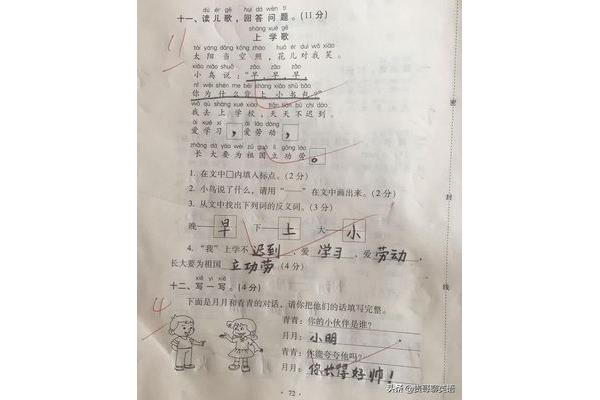 dú ér gē huí dá wèn tí
十一、读儿歌，回答问题。(11分)
11
shàng xué gē
上学歌
tài yáng dāng kōng zhào huā ér duì wǒ xiào
太阳当空照，花儿对我笑。
xiǎo niǎo shuō zǎo zǎo zǎo
小鸟说："早，早，早，
nǐ wèi shén me bēi shàng xiǎo shū bāo
你为什么背上小书包？"
wǒ qù shàng xué xiào tiān tiān bù chí dào
我去上学校，天天不迟到。
ài xué xí ài láo dòng
爱学习，爱劳动，
zhǎng dà yào wèi zǔ guó lì gōng láo
长大要为祖国立功劳。
1. 在文中□内填入标点。(2分)
2. 小鸟说了什么，请用"——"在文中画出来。(2分)
3. 从文中找出下列词的反义词。(3分)
晚—早 下—上 大—小
4. "我"上学不迟到，爱学习，爱劳动，
长大要为祖国立功劳(4分)
xiě yi xiě
十二、写一写。(4分)
4
下面是月月和青青的对话，请你把他们的话填写完整。
青青：你的小伙伴是谁？
月月：小明
青青：你能夸夸他吗？
月月：你长得好帅！
密
封
线
·72·
头条@贵哥聊英语